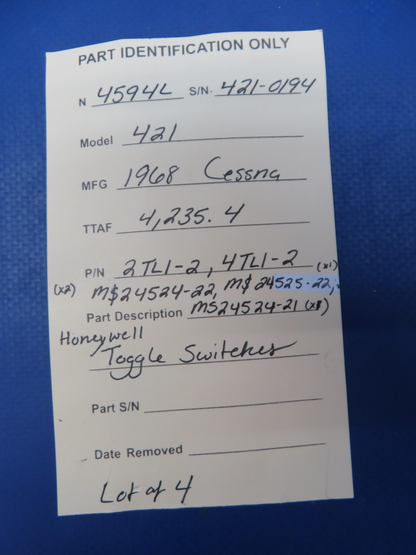 PART IDENTIFICATION ONLY
N 4594L S/N. 421-0194
Model 421
MFG 1968 Cessna
TTAF 4,235.4
P/N 2TL1-2, 4TL1-2 (x1)
(x2) MS24524-22, MS24525-22,
Part Description MS24524-21 (x1)
Honeywell
Toggle Switches
Part S/N
Date Removed
Lot of 4